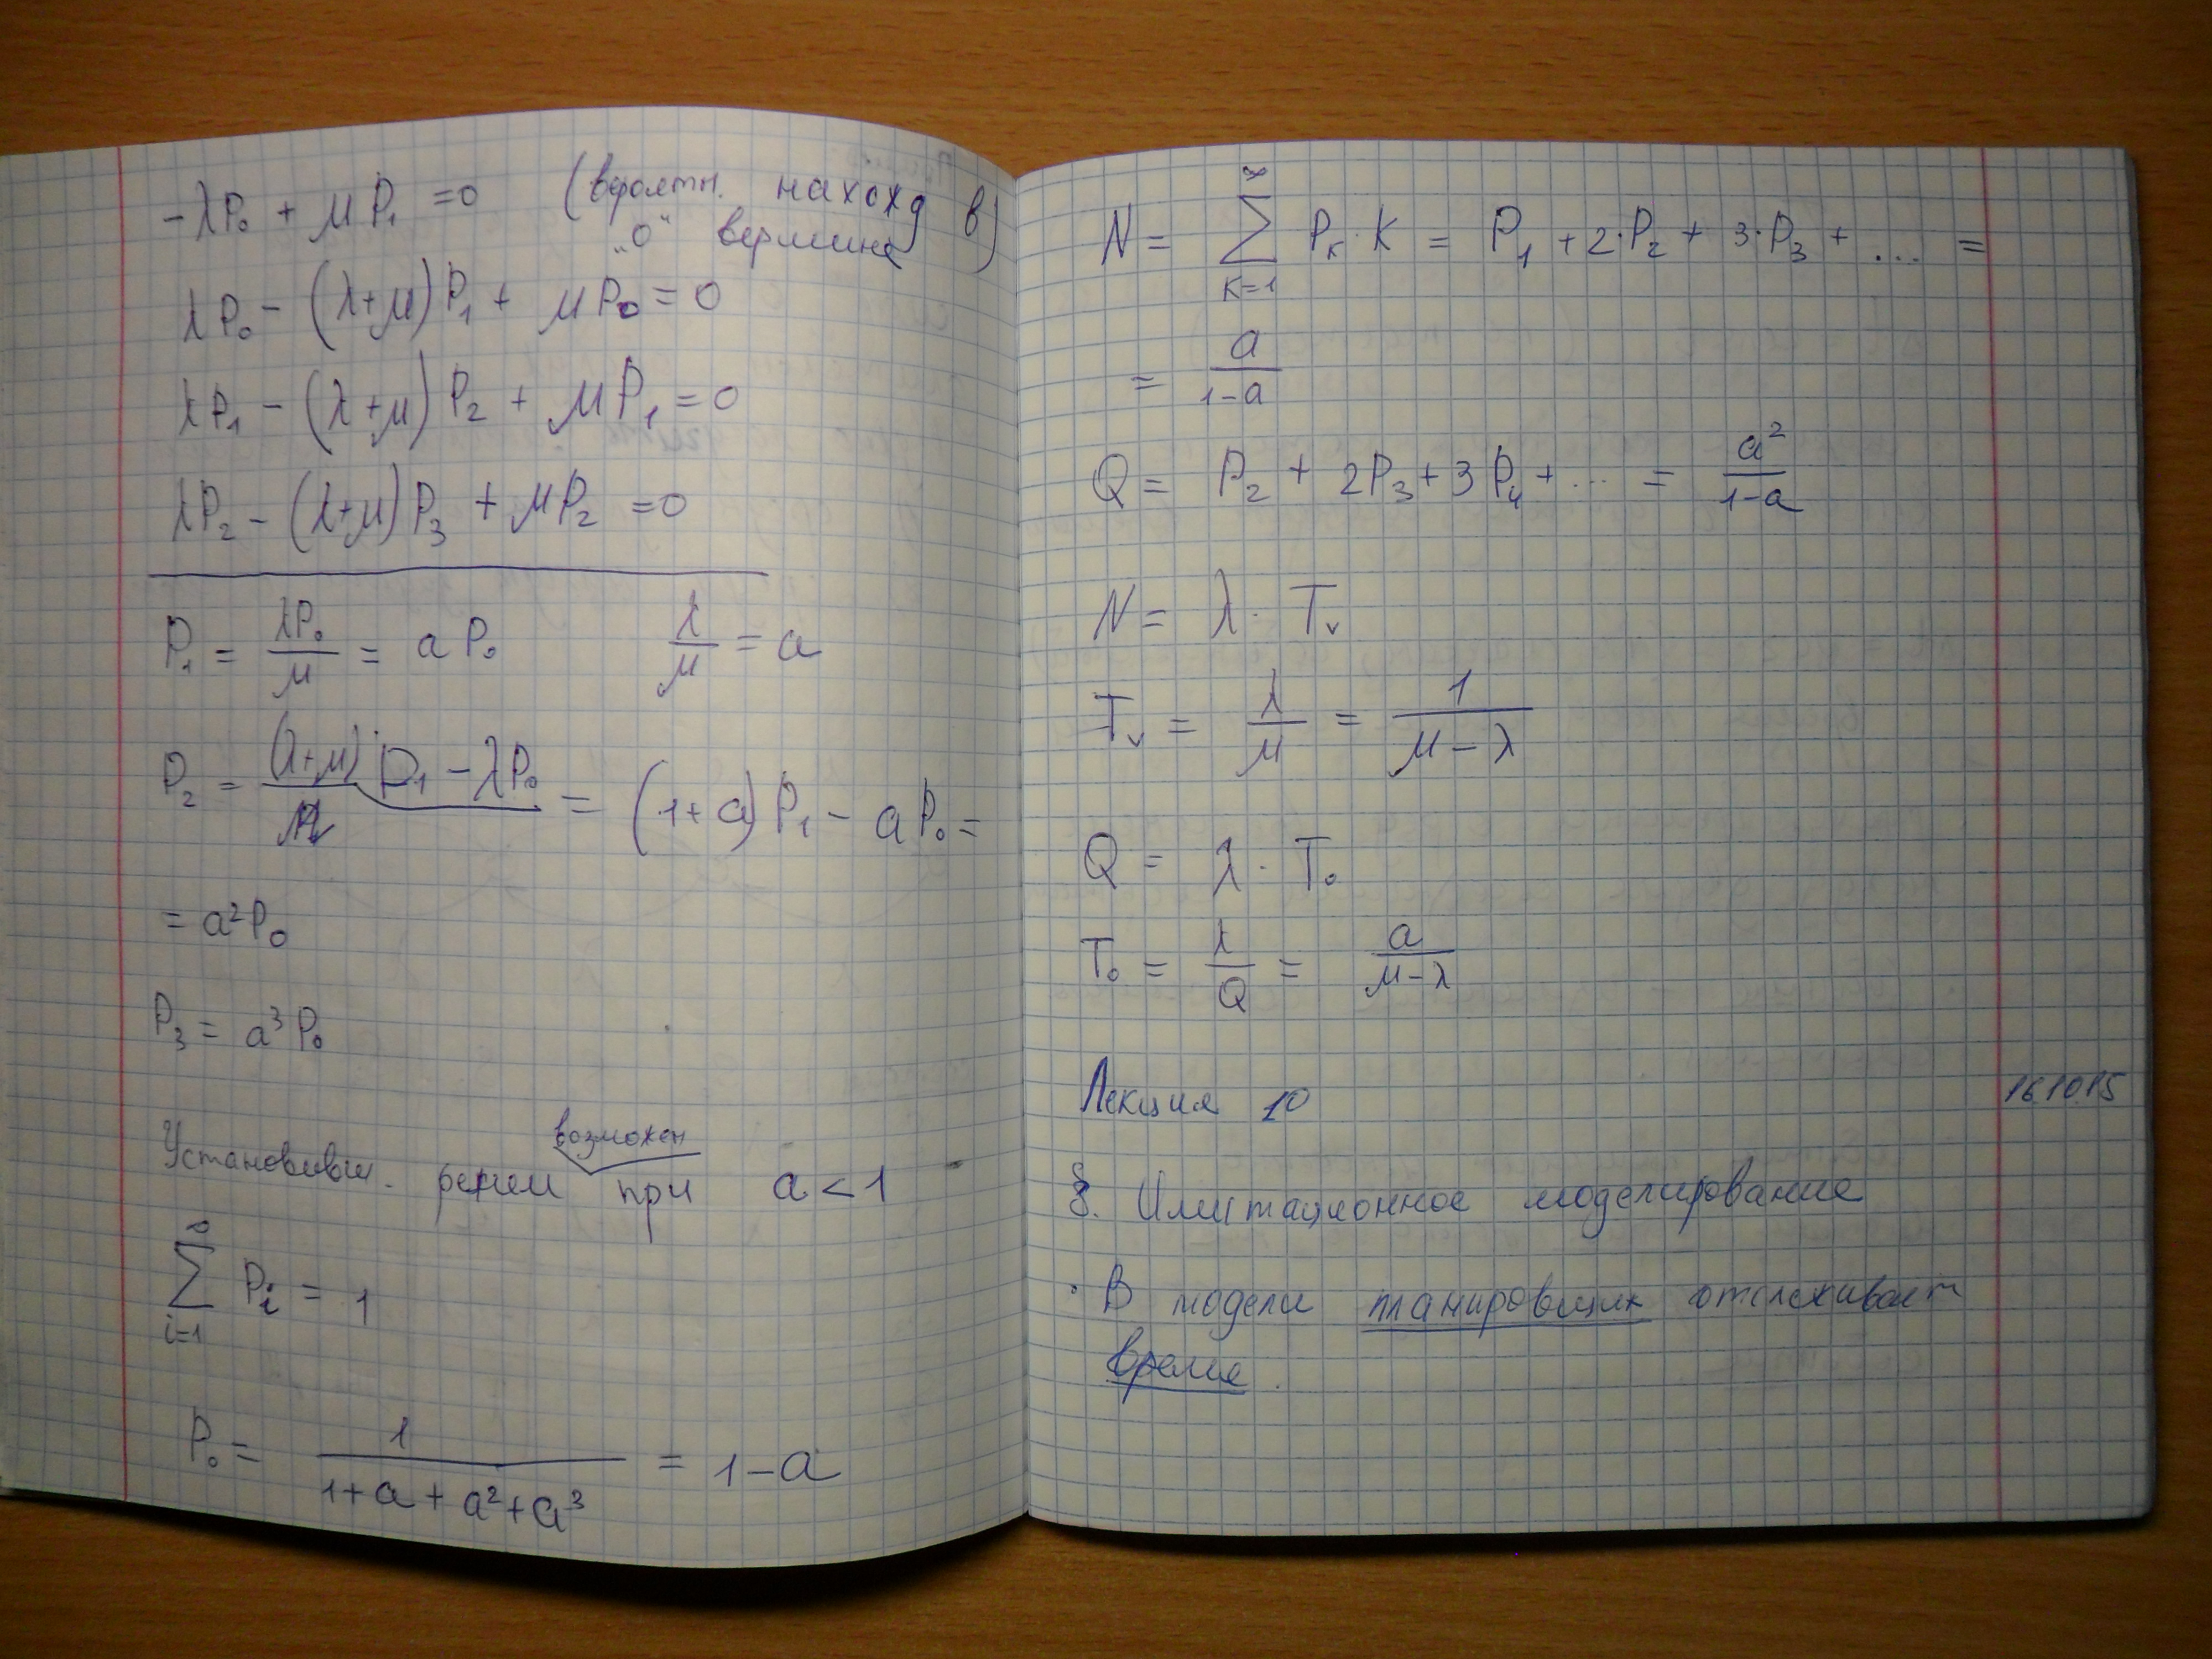 -λP₀ + μP₁ = 0 (вероятн. наход в)
„0“ вершине
λP₀ - (λ+μ)P₁ + μP₀ = 0
λP₁ - (λ+μ)P₂ + μP₁ = 0
λP₂ - (λ+μ)P₃ + μP₂ = 0
P₁ = λP₀/μ = aP₀ λ/μ = a
P₂ = (λ+μ)P₁ - λP₀/μ = (1+a)P₁ - aP₀ =
= a²P₀
P₃ = a³P₀
возможен
Установивш. режим при a < 1
∞
∑ Pi = 1
i=1
P₀ = 1/(1+a+a²+a³) = 1-a
∞
N = ∑ Pк·K = P₁ + 2·P₂ + 3·P₃ + ... =
K=1
= a/(1-a)
Q = P₂ + 2P₃ + 3P₄ + ... = a²/(1-a)
N = λ · Tᵥ
Tᵥ = λ/μ = 1/(μ-λ)
Q = λ · T₀
T₀ = λ/Q = a/(μ-λ)
Лекция 10 161015
§. Имитационное моделирование
· В модели планировщик отслеживает
время.